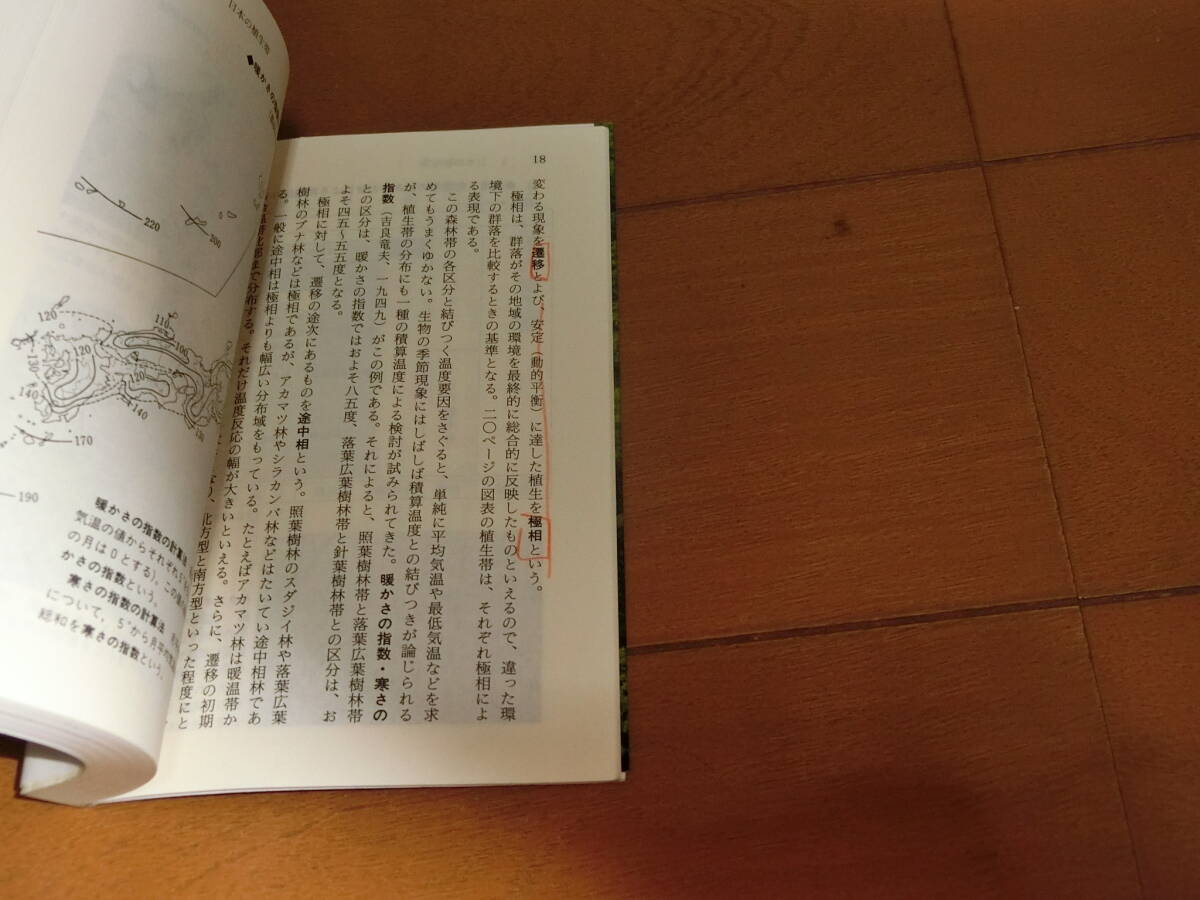 18
変わる現象を遷移とよび、安定（動的平衡）に達した植生を極相という。
極相は、群落がその地域の環境を最終的に総合的に反映したものといえるので、違った環
境下の群落を比較するときの基準となる。二〇ページの図表の植生帯は、それぞれ極相によ
る表現である。
この森林帯の各区分と結びつく温度要因をさぐると、単純に平均気温や最低気温などを求
めてもうまくゆかない。生物の季節現象にはしばしば積算温度との結びつきが論じられる
が、植生帯の分布にも一種の積算温度による検討が試みられてきた。暖かさの指数・寒さの
指数（吉良竜夫、一九四九）がこの例である。それによると、照葉樹林帯と落葉広葉樹林帯
との区分は、暖かさの指数ではおよそ八五度、落葉広葉樹林帯と針葉樹林帯との区分は、お
よそ四五〜五五度となる。
極相に対して、遷移の途次にあるものを途中相という。照葉樹林のスダジイ林や落葉広葉
樹林のブナ林などは極相であるが、アカマツ林やシラカンバ林などはたいてい途中相林であ
る。一般に途中相は極相よりも幅広い分布域をもっている。たとえばアカマツ林は暖温帯か
部まで分布する。それだけ温度反応の幅が大きいといえる。さらに、遷移の初期
り、北方型と南方型といった程度にと
日本の植生帯
◆暖かさの指
220
200
120
110
100
130
120
140
140
130
170
190
暖かさの指数の計算法
気温の値からそれぞれ5°
の月は0とする)。この
かさの指数という。
寒さの指数の計算法
について、5°から月平均気
総和を寒さの指数という。